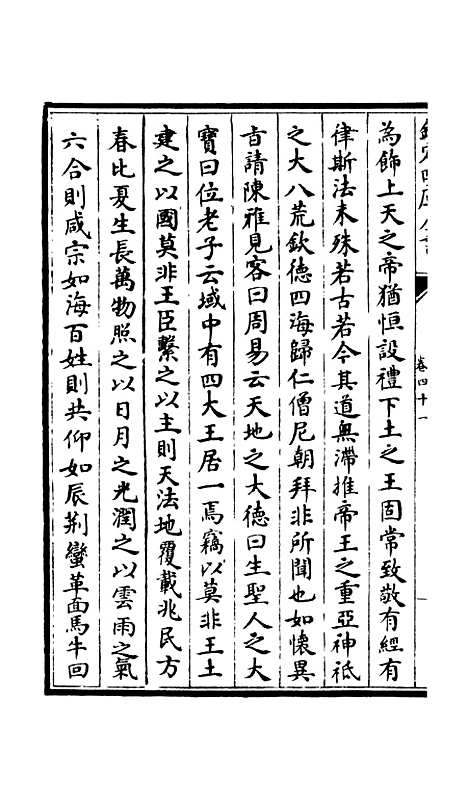 欽定四庫全書
卷四十一
為飾上天之帝猶恒設禮下土之王固常致敬有經有
律斯法未殊若古若今其道無滯推帝王之重亞神祇
之大八荒欽德四海歸仁僧尼朝拜非所聞也如懷異
旨請陳雅見客曰周易云天地之大德曰生聖人之大
寳曰位老子云域中有四大王居一焉竊以莫非王土
建之以國莫非王臣繫之以主則天法地覆載兆民方
春比夏生長萬物照之以日月之光潤之以雲雨之氣
六合則咸宗如海百姓則共仰如辰荆蠻革面馬牛回